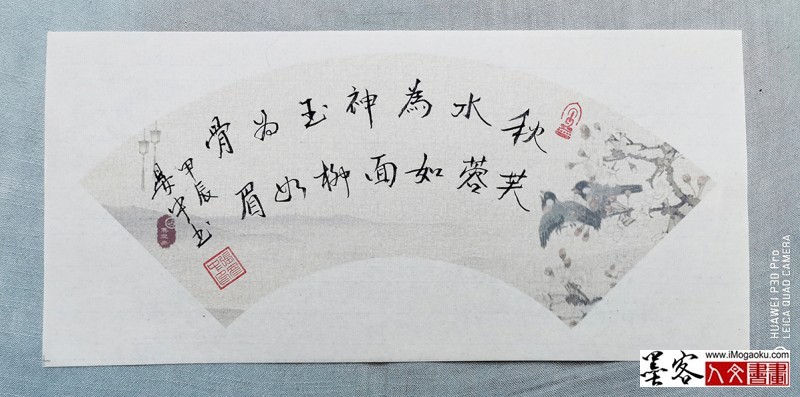 秋水為神玉为骨
芙蓉如面柳如眉
甲辰
中书
HUAWEI P30 Pro
LEICA QUAD CAMERA
www.iMogaoku.com
墨客人文書畫